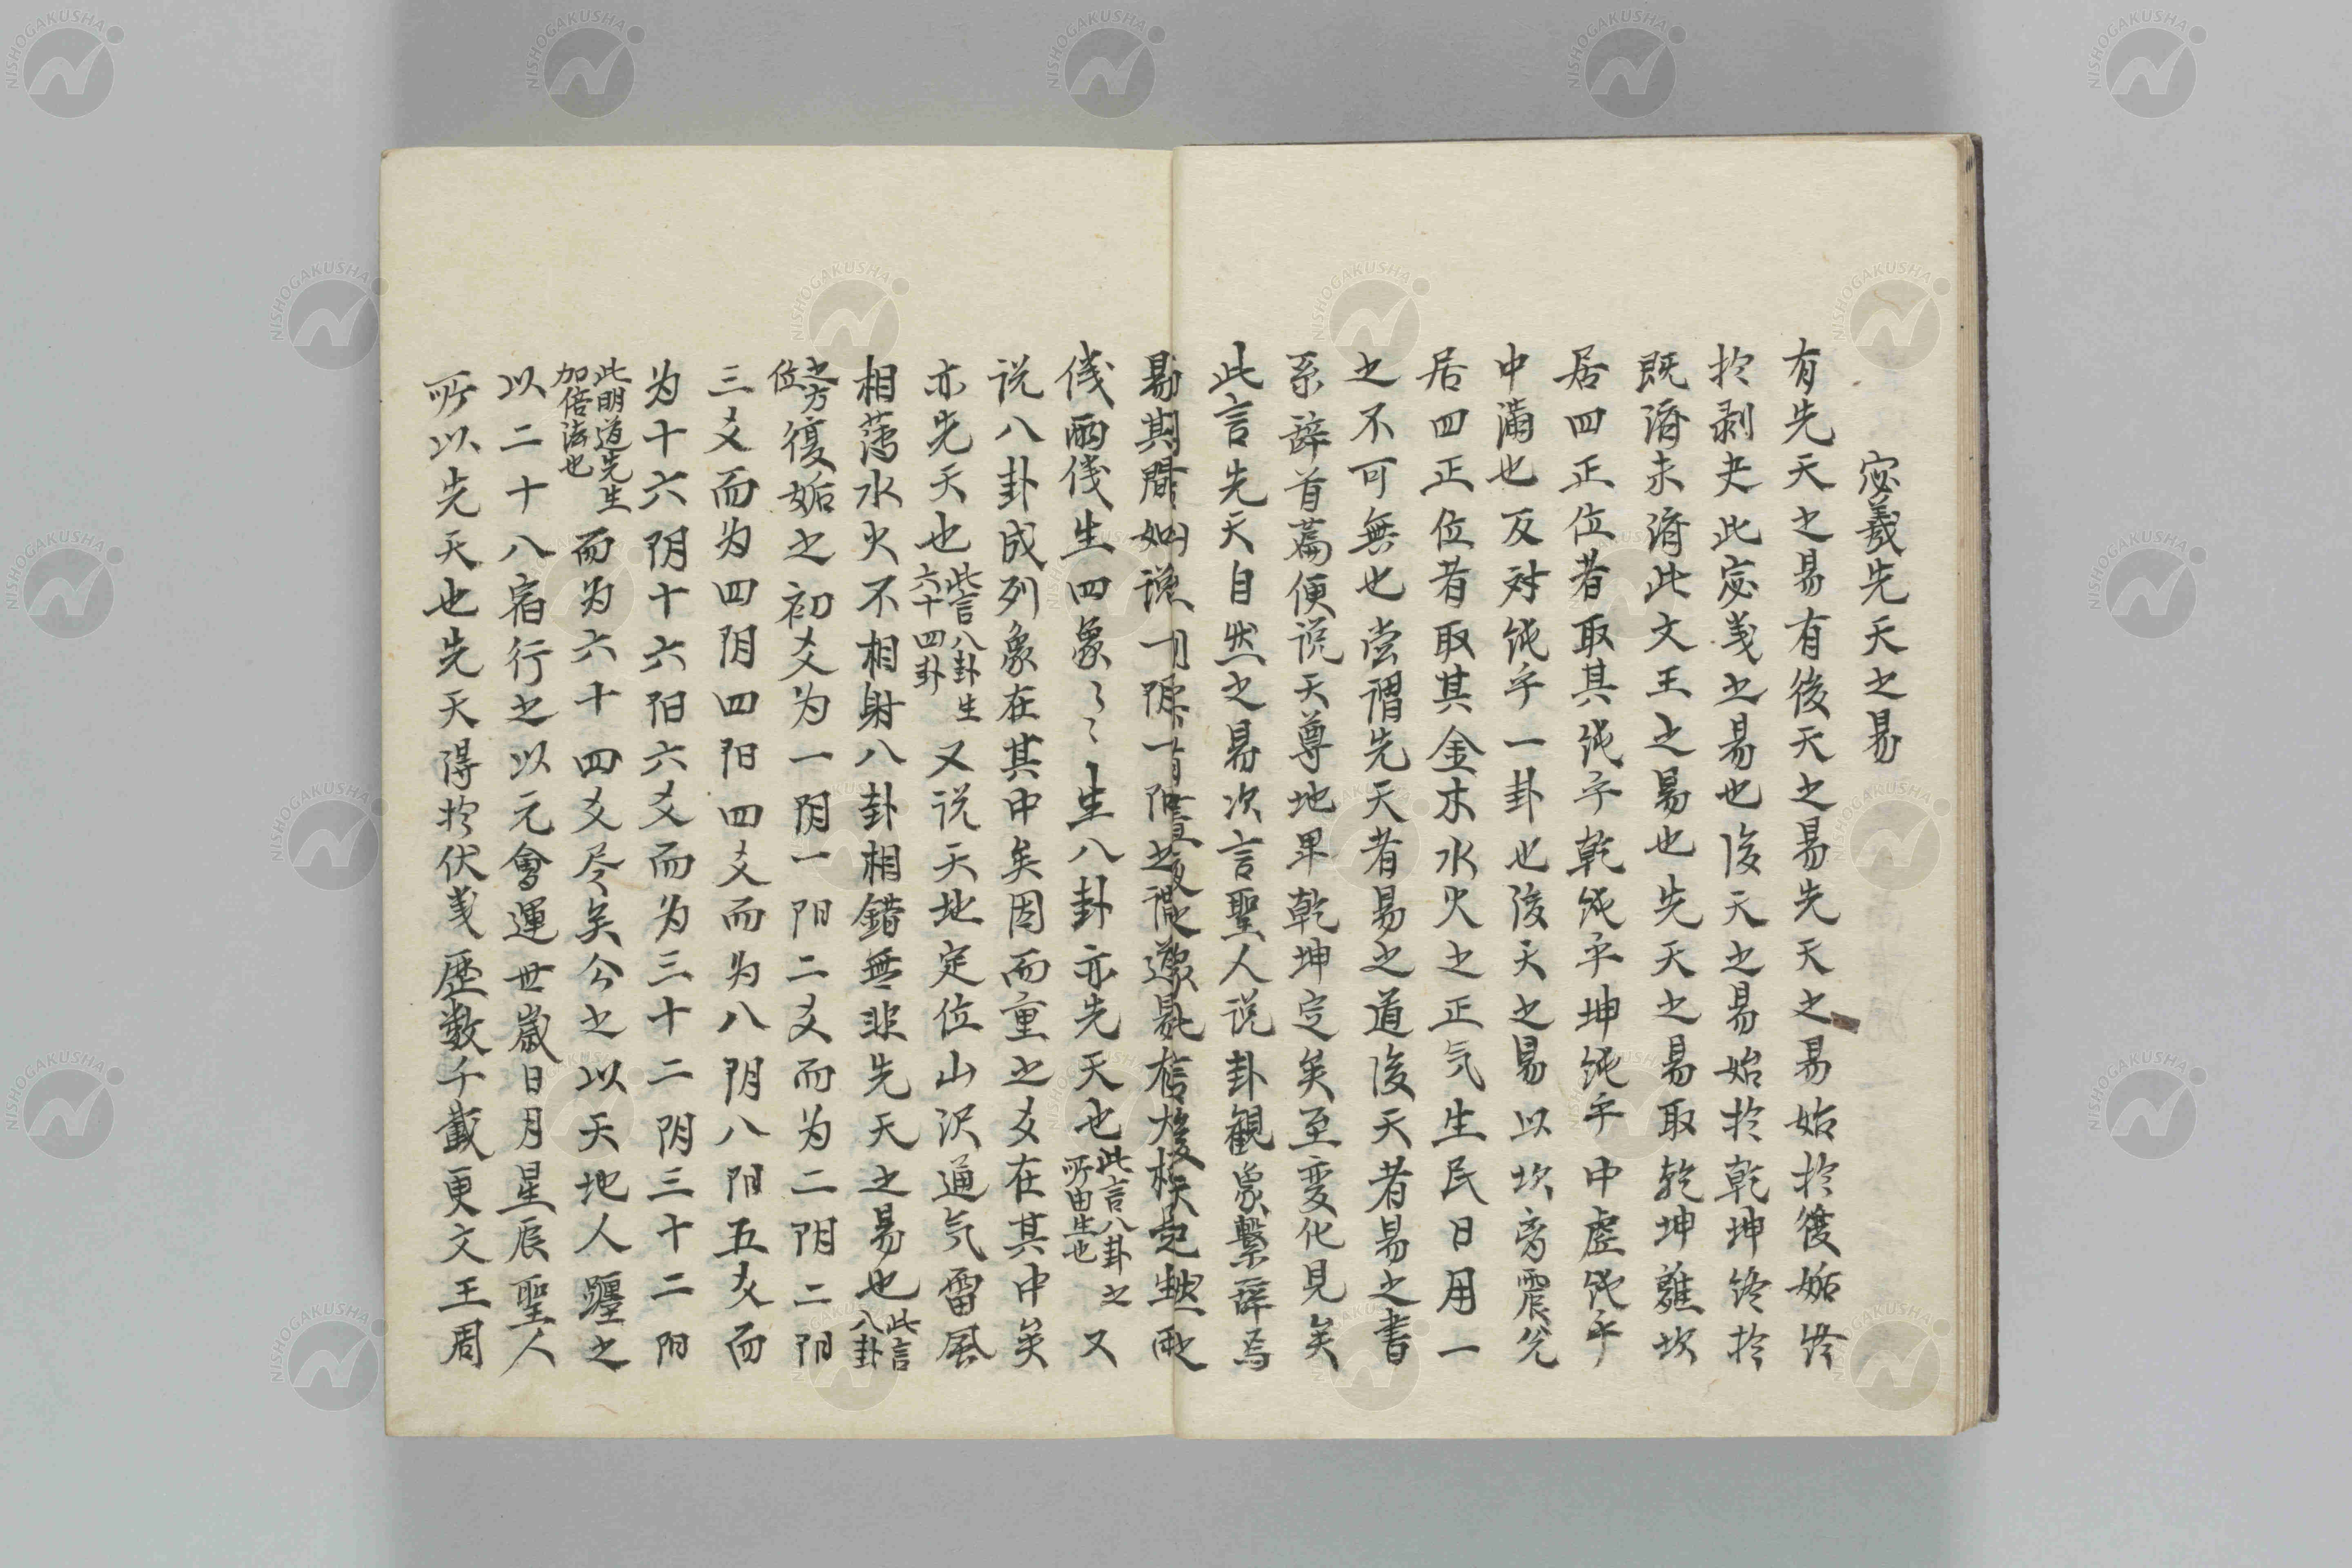 宓羲先天之易
有先天之易有後天之易先天之易始於復姤终
於剥夬此宓羲之易也後天之易始於乾坤终於
既濟未濟此文王之易也先天之易取乾坤離坎
居四正位者取其纯乎乾纯乎坤纯乎中虚纯乎
中满也反对纯乎一卦也後天之易以坎离震兑
居四正位者取其金木水火之正气生民日用一
之不可無也尝谓先天者易之道後天者易之書
系辞首篇便说天尊地卑乾坤定矣至变化見矣
此言先天自然之易次言聖人说卦観象繫辞焉
儀兩儀生四象〻〻生八卦亦先天也此言八卦之所由生也又
说八卦成列象在其中矣因而重之爻在其中矣
亦先天也此言八卦生六十四卦又说天地定位山沢通气雷風
相薄水火不相射八卦相錯無非先天之易也此言八卦
之方位復姤之初爻为一阴一阳二爻而为二阴二阳
三爻而为四阴四阳四爻而为八阴八阳五爻而
为十六阴十六阳六爻而为三十二阴三十二阳
此明道先生加倍法也而为六十四爻尽矣今之以天地人躔之
以二十八宿行之以元會運世歲日月星辰聖人
所以先天也先天得於伏羲歷数千載更文王周
NISHOGAKUSHA